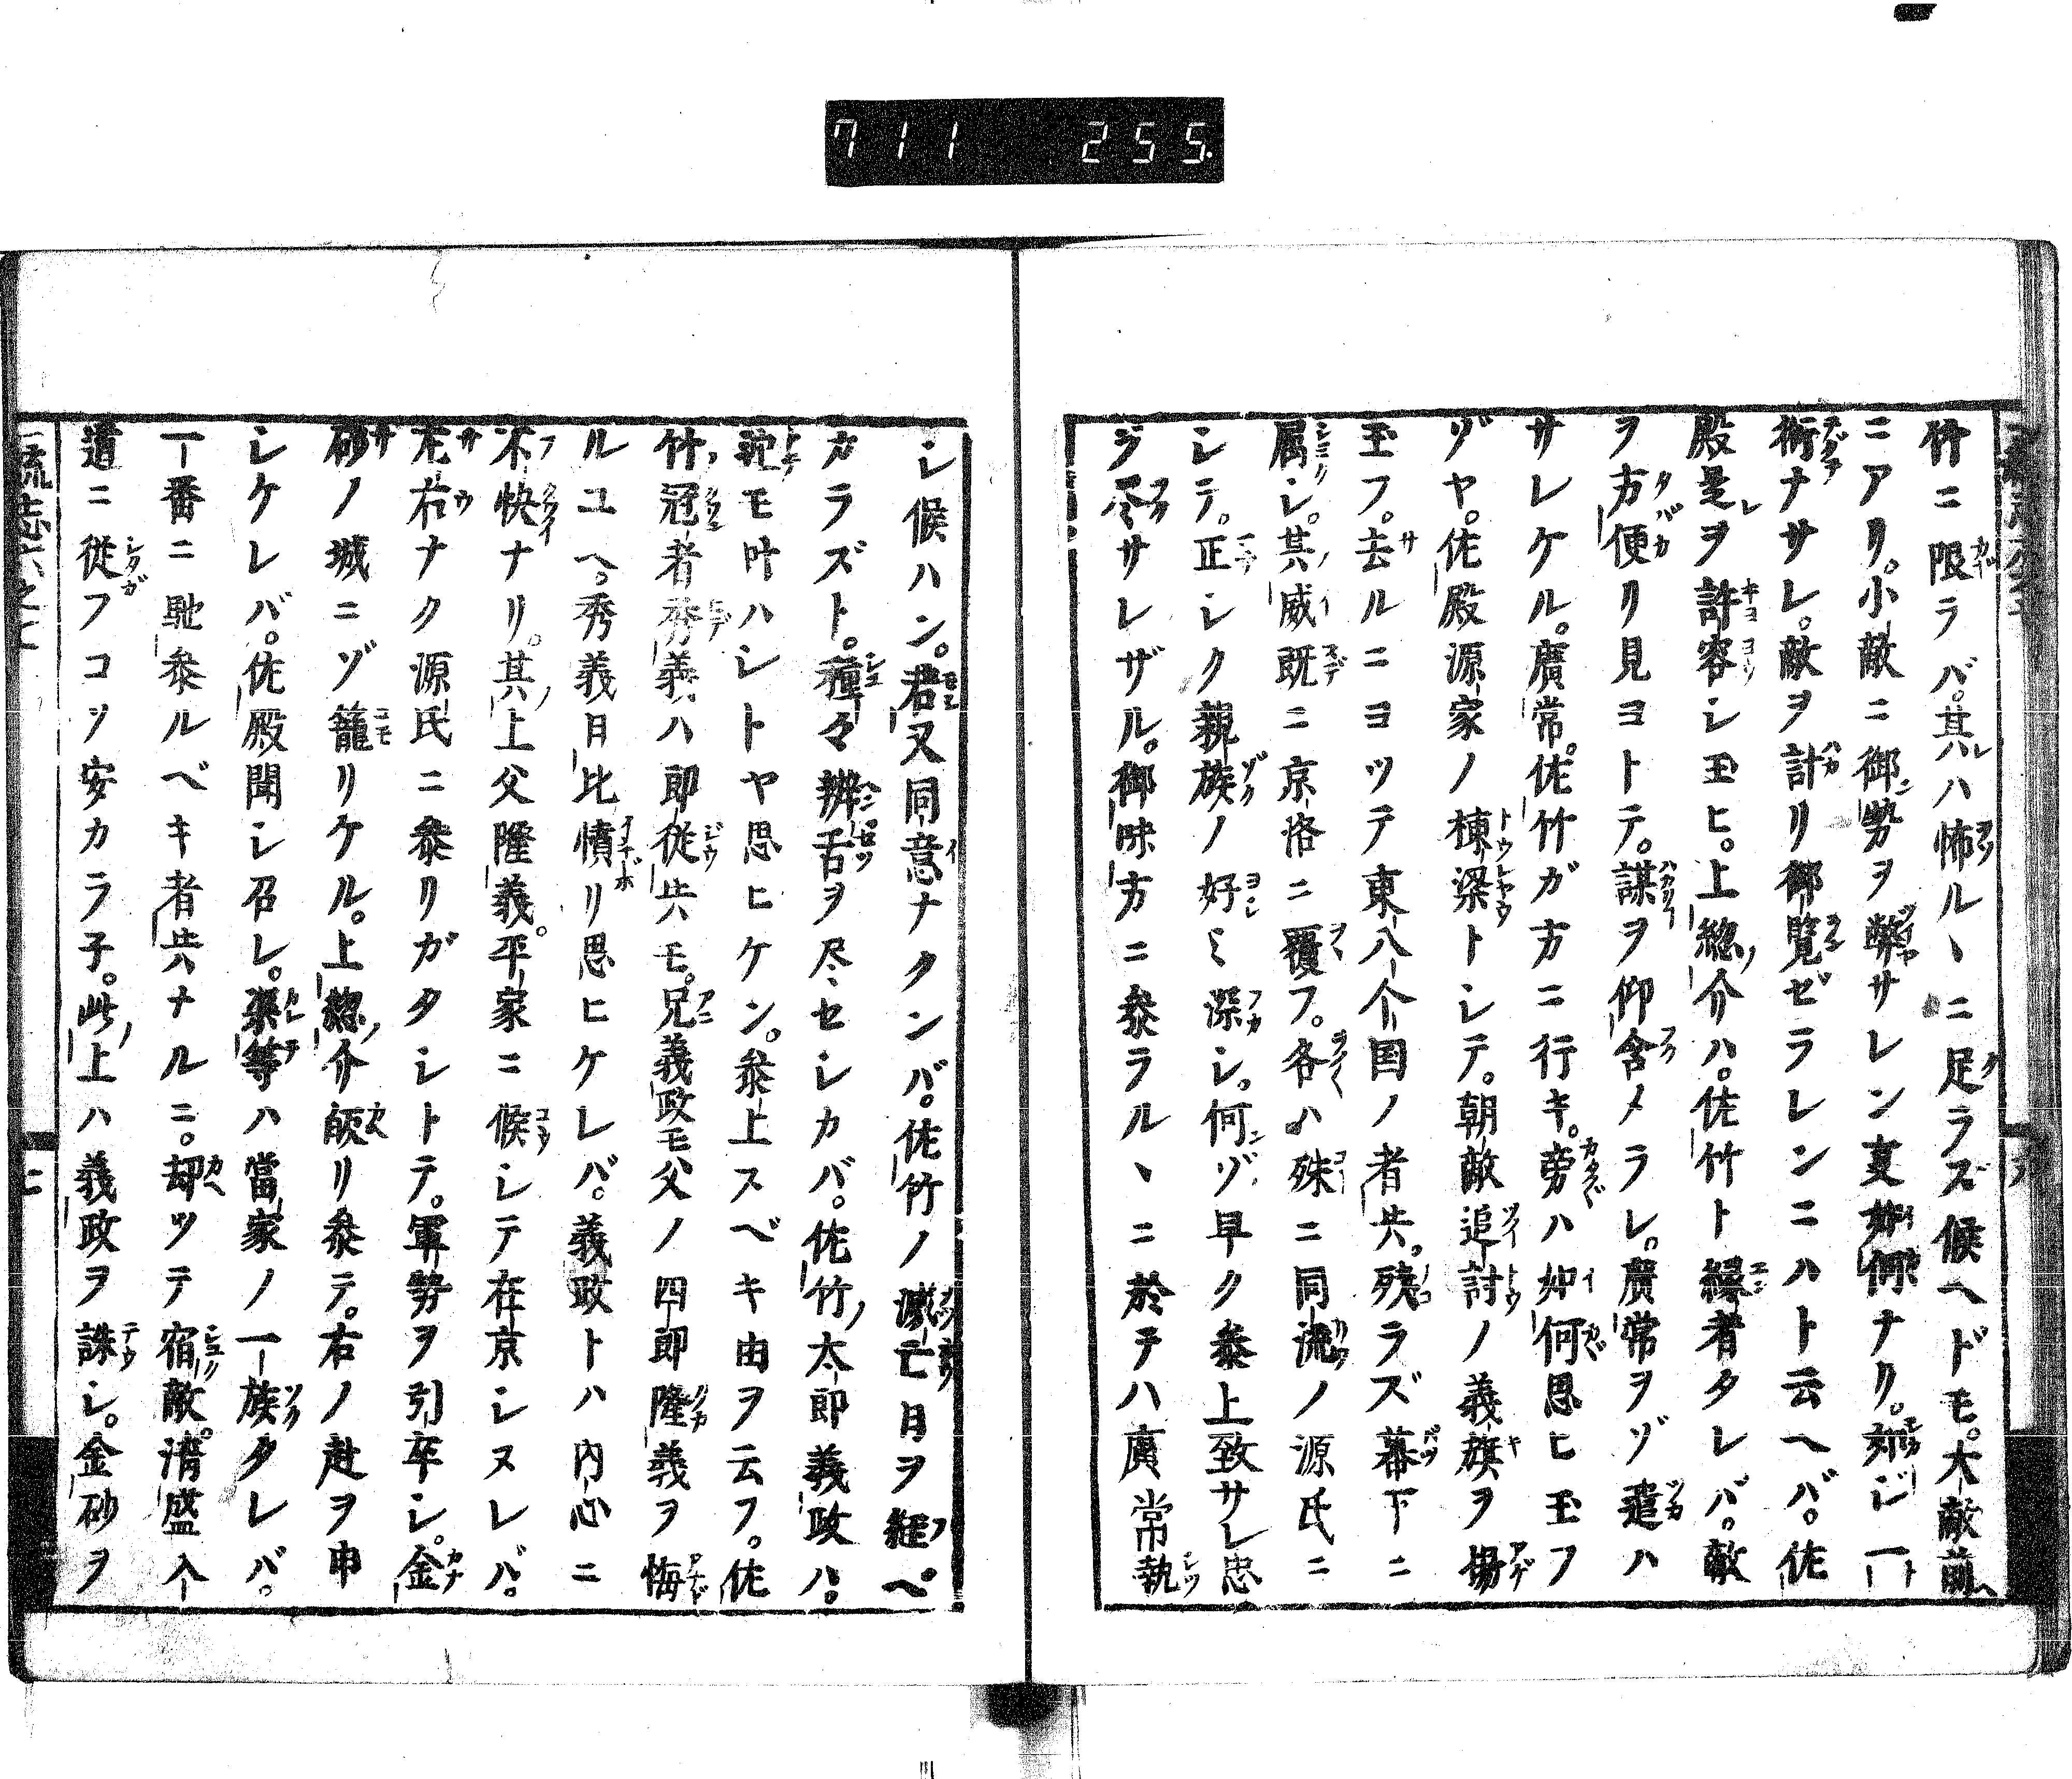 711 255.
竹ニ限ラバ。其ハ怖ルヽニ足ラズ候ヘドモ。大敵前
ニアリ。小敵ニ御勢ヲ弊サレン叓如何ナリ。如ジ一
術ナサレ。敵ヲ計リ御覧ゼラレンニハト云ヘバ。佐
殿是ヲ許容シ玉ヒ。上緫介ハ。佐竹ト縁者タレバ。敵
ヲ方便リ見ヨトテ。謀ヲ仰含メラレ。廣常ヲゾ遣ハ
サレケル。廣常。佐竹ガ方ニ行キ。旁ハ如何思ヒ玉フ
ゾヤ。佐殿源家ノ棟梁トシテ。朝敵追討ノ義旗ヲ揚
玉フ。去ルニヨツテ東八介国ノ者共。残ラズ幕下ニ
属シ。其威既ニ京洛ニ覆フ。各ハ殊ニ同流ノ源氏ニ
シテ。正シク親族ノ好ミ深シ。何ゾ早ク参上致サレ忠
ヲ尽サレザル。御味方ニ参ラルヽニ於テハ廣常執
シ候ハン。君又同意ナクンバ。佐竹ノ滅亡日ヲ経ベ
カラズト。種々辨舌ヲ尽セシカバ。佐竹太郎義政ハ。
迚モ叶ハシトヤ思ヒケン。参上スベキ由ヲ云フ。佐
竹冠者秀義ハ郎従共モ。兄義政モ父ノ四郎隆義ヲ悔
ルユヘ。秀義日比憤リ思ヒケレバ。義政トハ内心ニ
不快ナリ。其上父隆義。平家ニ候シテ在京シヌレバ。
左右ナク源氏ニ参リガタシトテ。軍勢ヲ引卒シ。金
砂ノ城ニゾ籠リケル。上緫介皈リ参テ。右ノ赴ヲ申
シケレバ。佐殿聞シ召レ。渠等ハ當家ノ一族タレバ。
一番ニ馳参ルベキ者共ナルニ。却ツテ宿敵清盛入
道ニ従フコソ安カラ子。此上ハ義政ヲ誅シ。金砂ヲ